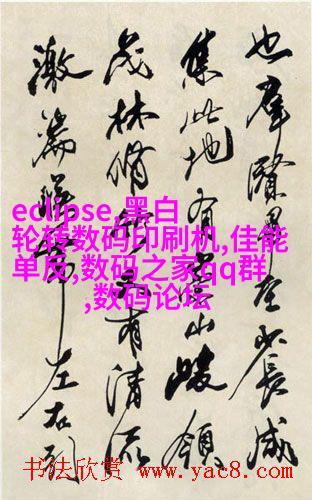 也羣賢畢至少長咸
集此地有崇山峻領
茂林脩竹又有清流
激湍暎帶左右引
eclipse,黑白
轮转数码印刷机,佳能
单反,数码之家qq群
,数码论坛
书法欣赏 www.yac8.com